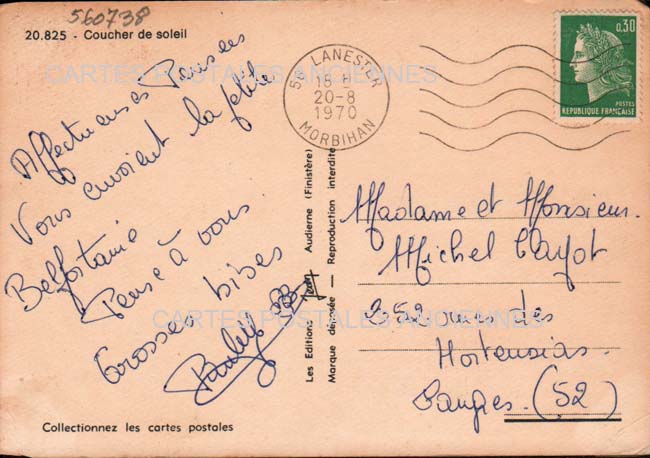 560738
20.825 - Coucher de soleil
CARTES POSTALES ANCIENNES
Affectueuses Pensées
Vous envoient la petite
Belfortaine
Pense à vous
Grosses bises
Collectionnez les cartes postales
Les Editions Jean Audierne (Finistère)
Marque déposée — Reproduction interdite
56 LANESTER
18 H
20-8
1970
MORBIHAN
0,30
POSTES
REPUBLIQUE FRANÇAISE
Madame et Monsieur
Michel Cayot
252 rue des
Hortensias
CARTES POSTALES ANCIENNES
(52)